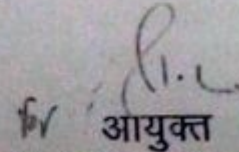 for आयुक्त